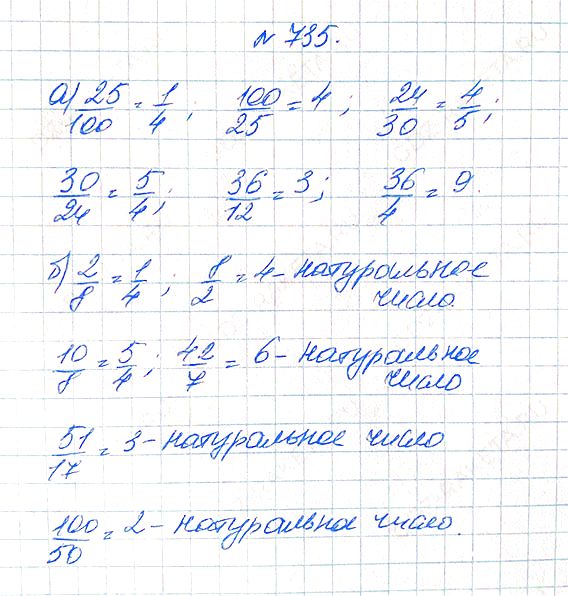 № 735.
а) 25/100 = 1/4; 100/25 = 4; 24/30 = 4/5;
30/24 = 5/4; 36/12 = 3; 36/4 = 9.
б) 2/8 = 1/4; 8/2 = 4 - натуральное
число.
10/8 = 5/4; 42/7 = 6 - натуральное
число
51/17 = 3 - натуральное число
100/50 = 2 - натуральное число.